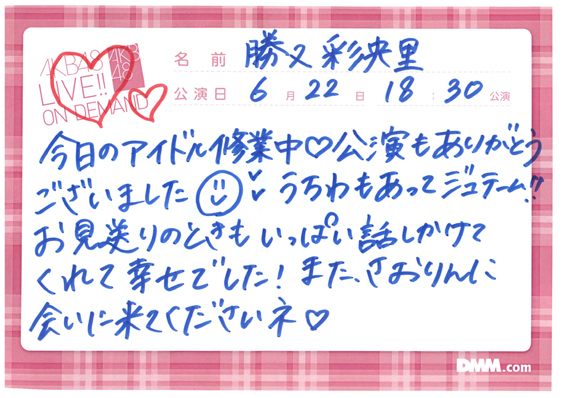 AKB48
LIVE!!
ON DEMAND
AKB
48
名前 勝又 彩央里
公演日 6月22日 18:30公演
今日のアイドル修業中♡公演もありがとう
ございました☺ うちわもあってジュテーム!!
お見送りのときもいっぱい話しかけて
くれて幸せでした！また、さおりんに
会いに来てくださいネ♡
DMM.com